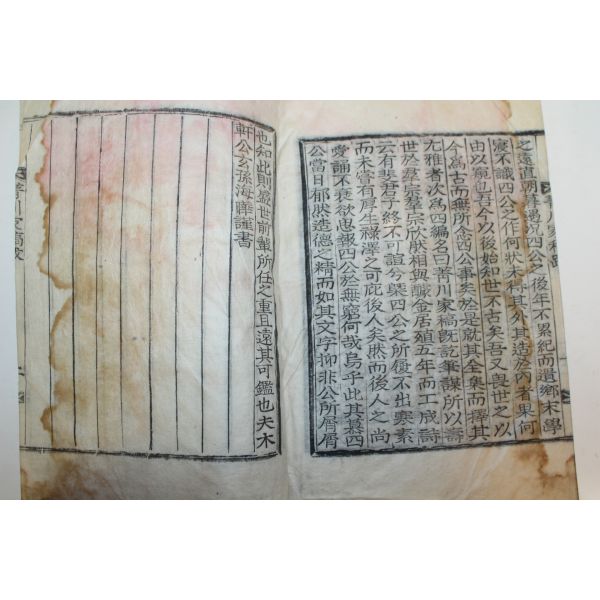 之遠直朝暮遇況四公之後年不累紀而遺鄉末學
寢不識四公之作何狀未稱其外其造於內者果何
由以窺也吾今以後始知世不古矣吾又與世之以
今爲古而無所念四公事矣於是就其全集而擇其
尤雅者次爲四編名曰菁川家稿旣訖筆謀所以
世於羣宗羣宗欣然相與醵金居殖五年而工成壽
云有斐君子終不可諼兮槩四公之所履不出寒素
而未嘗有厚生祿澤之可庇後人矣然而後人之尚
愛誦不衰欲思報四公於無窮何哉烏乎此其慕四
公當日郁然造德之精而如其文字抑非公所屑屑
也知此則盛世前輩所任之重且遠其可鑑也夫木
軒公玄孫海曄謹書
菁川家稿跋